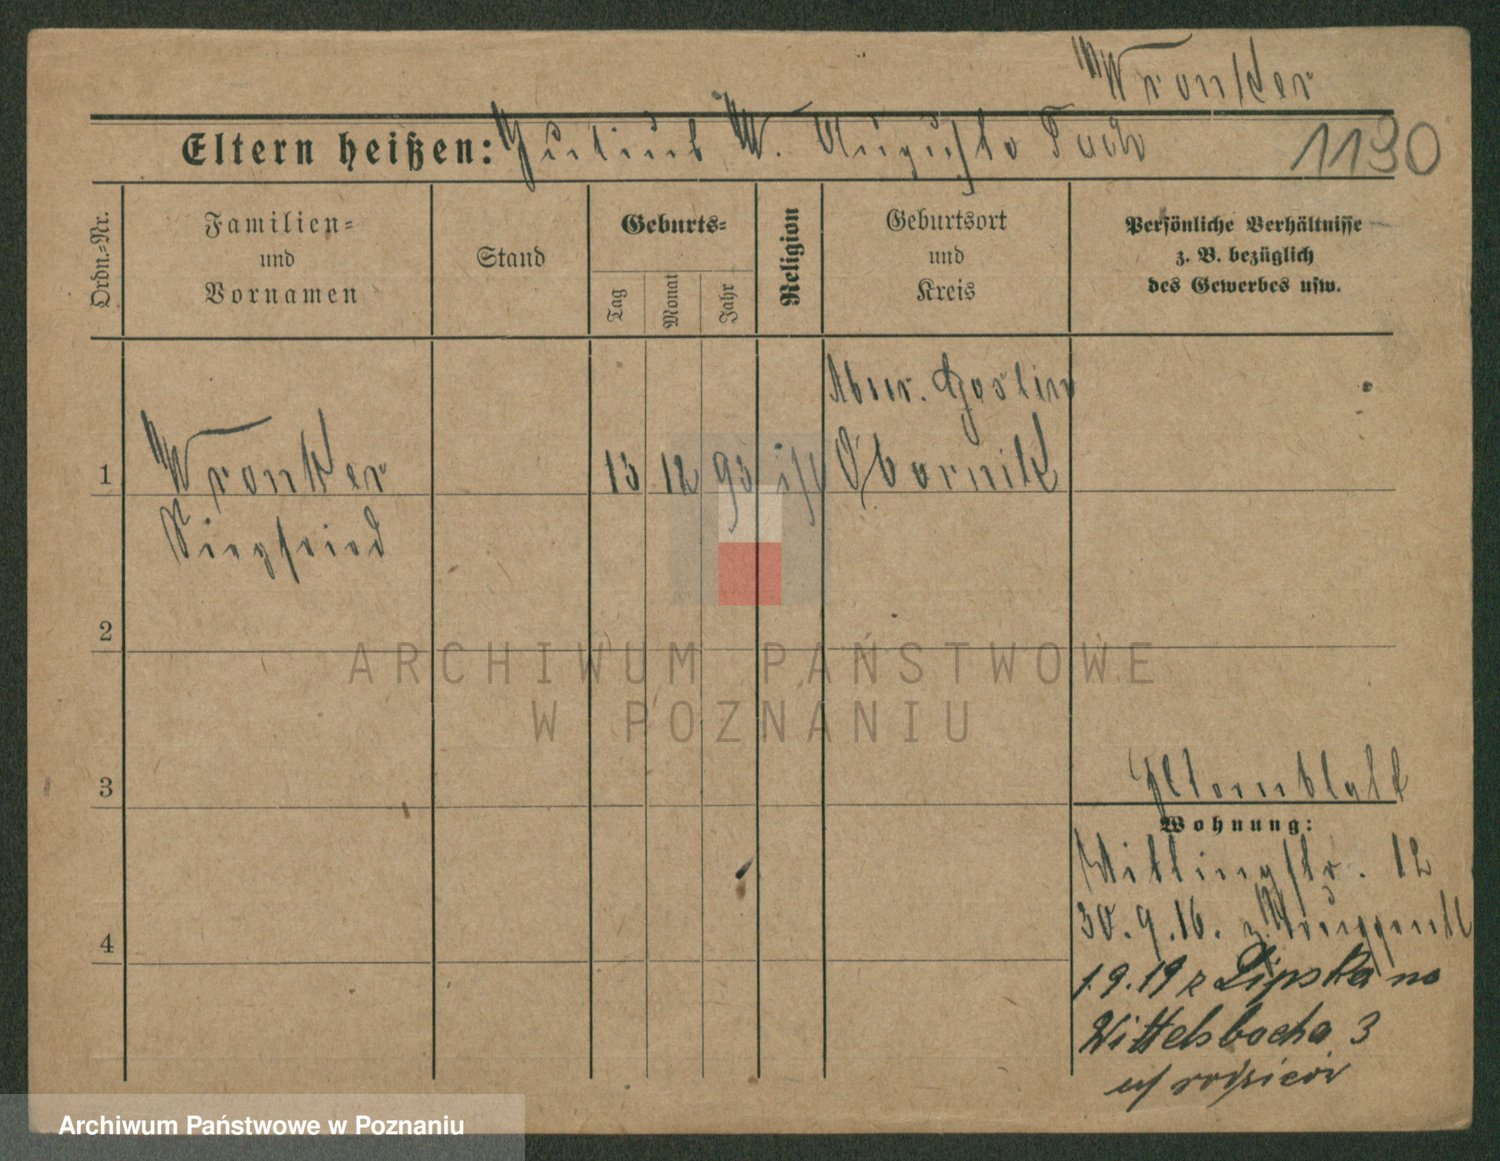 Wronker
Eltern heißen: Julius W. Auguste Tuch
1190
Ordn.=Nr.
Familien=
und
Vornamen
Stand
Geburts=
Tag
Monat
Jahr
Religion
Geburtsort
und
Kreis
Persönliche Verhältnisse
z. B. bezüglich
des Gewerbes usw.
Mur. Goslin
1 Wronker 13 12 93 isr Obornik
Siegfried
2
3
4
Elternblatt
Wohnung:
12
30.9.16. z.
1.9.19 z Lipska na
Wittelsbacha 3
ARCHIWUM PAŃSTWOWE
W POZNANIU
Archiwum Państwowe w Poznaniu